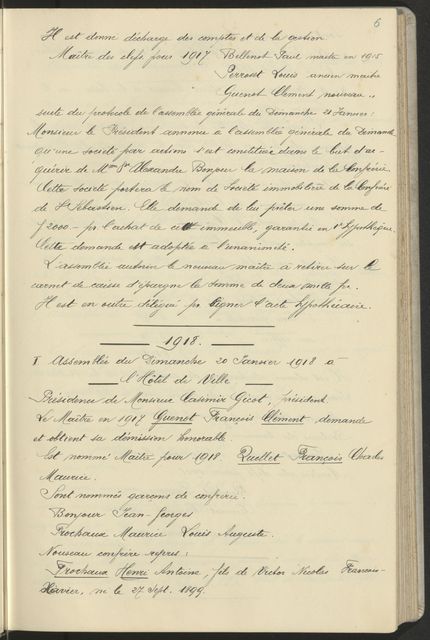 6
Il est donné décharge des comptes et de la gestion
Maître des clefs pour 1917 Bellenot Paul maître en 1915
Perroset Louis ancien maître
Guenot Clément, nouveau "
suite du protocole de l'assemblée générale du Dimanche 21 Janvier:
Monsieur le Président annonce à l'assemblée générale du Dimanche
qu'une société par actions s'est constituée dans le but d'ac-
quérir de Mme Vve Alexandre Bonjour la maison de la Confrérie.
Cette Société portera le nom de Société immobilière de la Confrérie
de St Sébastien. Elle demande de lui prêter une somme de
f 2000 - pr l'achat de cett immeuble, garantie en 1e hypothèque.
Cette demande est adoptée à l'unanimité.
L'assemblée autorise le nouveau maître à retirer sur le
carnet de caisse d'épargne la somme de deux mille fr.
Il est en outre délégué pr signer l'acte hypothécaire.
1918.
I Assemblée du Dimanche 20 Janvier 1918 à
l'Hôtel de Ville
Présidence de Monsieur Casimir Gicot, président
Le Maître en 1917 Guenot François Clément, demande
et obtient sa démission honorable.
Est nommé Maître pour 1918 Quellet François Charles
Maurice.
Sont nommés garçons de confrérie.
Bonjour Jean-Georges
Frochaux Maurice Louis Auguste.
Nouveau confrère repris:
Frochaux Henri Antoine, fils de Victor Nicolas François-
Xavier, né le 27 Sept. 1899.